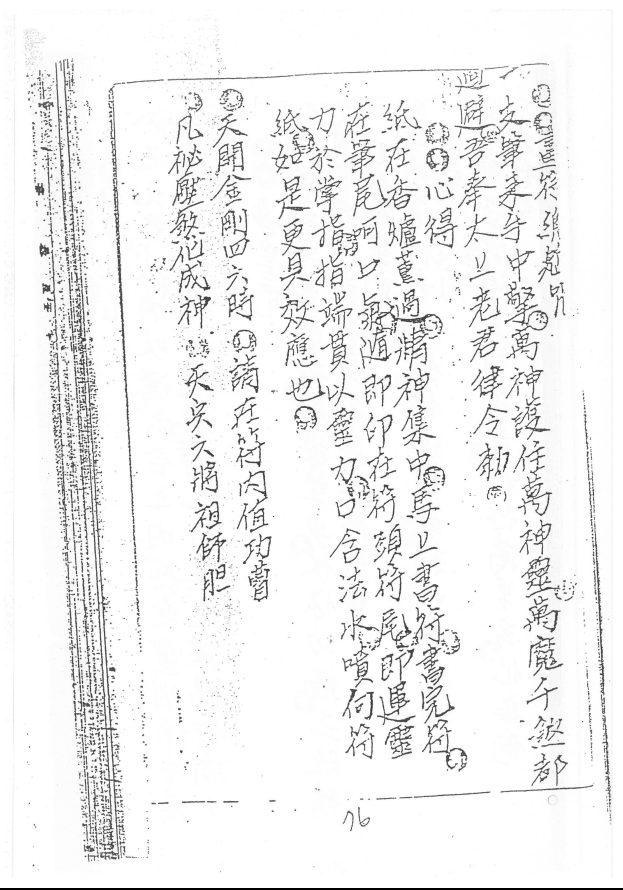 書符後念咒
支筆來手中擎萬神護住萬神靈萬魔千煞都
迴避吾奉太上老君律令勅
心得
紙在香爐薰過精神集中馬上書符書完符
在筆尾呵口氣隨即印在符頭符尾即運靈
力於掌指指端貫以靈力口含法水噴何符
紙如是更具效應也
天開金剛四六時 請在符內值功曹
凡祕壓煞化成神 天兵六將祖師胆
76